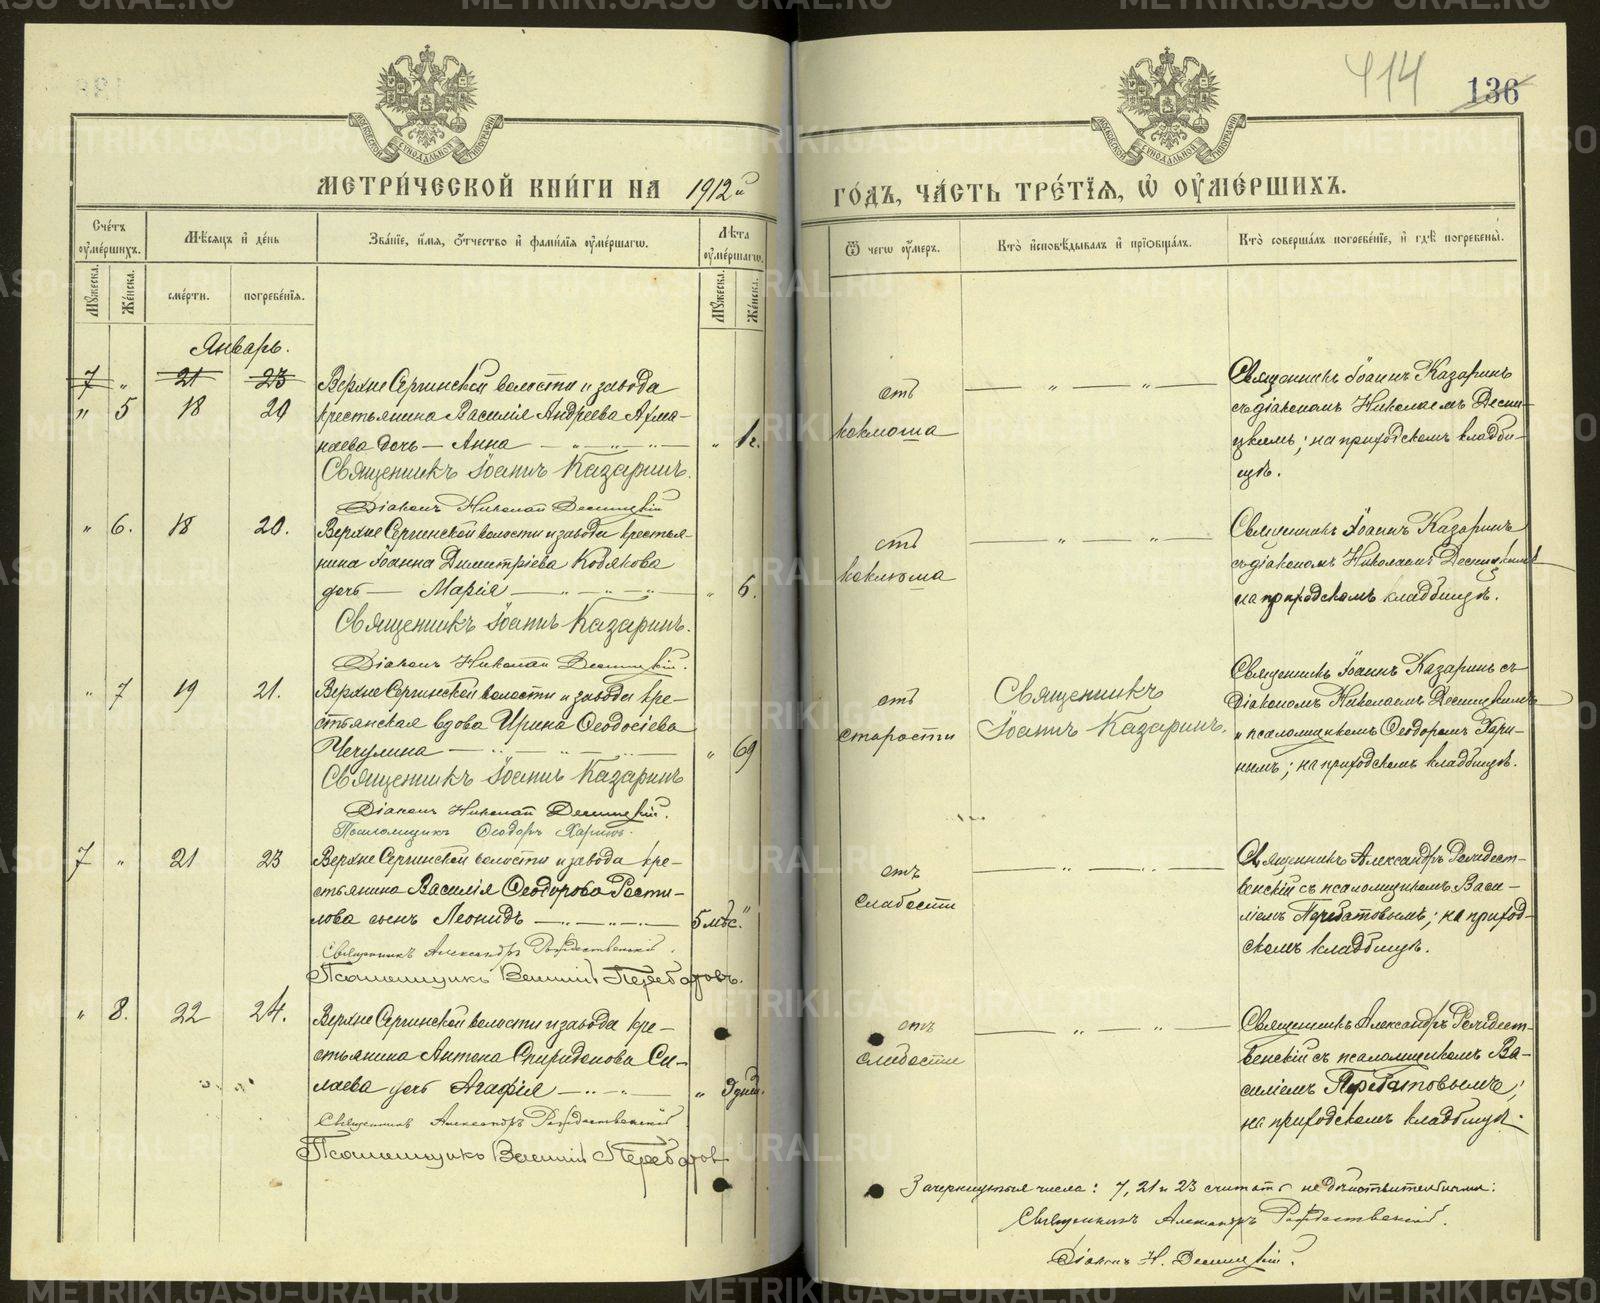 414
136
МОСКОВСКОЙ СѴНОДАЛЬНОЙ ТИПОГРАФІИ
МОСКОВСКОЙ СѴНОДАЛЬНОЙ ТИПОГРАФІИ
МЕТРИ́ЧЕСКОЙ КНИ́ГИ НА 1912й
ГО́ДЪ, ЧА́СТЬ ТРЕ́ТЇѦ, Ѡ҆ ОУ҆МЕ́РШИХЪ.
Сче́тъ оу҆ме́ршихъ.
Мꙋ́жеска.
Же́нска.
Мѣ́сяцъ и҆ де́нь
сме́рти.
погребе́нїѧ.
Зва́нїе, и҆́мѧ, ѻ҆́тчество и҆ фами́лїѧ оу҆ме́ршагѡ.
Лѣ́та оу҆ме́ршагѡ.
Мꙋ́жеска.
Же́нска.
Ѿ чегѡ̀ оу҆́меръ.
Кто̀ и҆сповѣ́дывалъ и҆ прїѡбща́лъ.
Кто̀ соверша́лъ погребе́нїе, и҆ гдѣ̀ погребены̀.
Январь.
7 " 21 23
" 5 18 20
Верхне Сергинской волости и завода
крестьянина Василія Андреева Ахма-
наева дочь — Анна — " — " — " 1 г.
Священникъ Іоаннъ Казаринъ.
Діаконъ Николай Десницкій
отъ
коклюша
— " — " —
Священникъ Іоаннъ Казаринъ
съ діакономъ Николаемъ Десни-
цкимъ; на приходскомъ кладби-
щѣ.
" 6. 18 20.
Верхне Сергинской волости и завода крестья-
нина Іоанна Димитріева Кодякова
дочь — Марія — " — " — " 6.
Священникъ Іоаннъ Казаринъ.
Діаконъ Николай Десницкій.
отъ
коклюша
— " — " —
Священникъ Іоаннъ Казаринъ
съ діакономъ Николаемъ Десницкимъ
на приходскомъ кладбищѣ.
" 7 19 21.
Верхне Сергинской волости и завода кре-
стьянская вдова Ирина Ѳеодосіева
Чечулина — " — " — " 69
Священникъ Іоаннъ Казаринъ
Діаконъ Николай Десницкій.
Псаломщикъ Ѳеодоръ Харинъ.
отъ
старости
Священникъ
Іоаннъ Казаринъ.
Священникъ Іоаннъ Казаринъ съ
діакономъ Николаемъ Десницкимъ
и псаломщикомъ Ѳеодоромъ Хари-
нымъ; на приходскомъ кладбищѣ.
7 " 21 23
Верхне Сергинской волости и завода кре-
стьянина Василія Ѳеодорова Рости-
лова сынъ Леонидъ — " — " — 5 мѣс. "
Священникъ Александръ Рождественскій.
Псаломщикъ Василій Перебатовъ.
отъ
слабости
— " — " —
Священникъ Александръ Рождест-
венскій съ псаломщикомъ Васи-
ліемъ Перебатовымъ; на приход-
скомъ кладбищѣ.
" 8. 22 24.
Верхне Сергинской волости и завода кре-
стьянина Антона Спиридонова Си-
лаева дочь Агафія — " — " 9 дней.
Священникъ Александръ Рождественскій
Псаломщикъ Василій Перебатовъ
отъ
слабости
— " — " —
Священникъ Александръ Рождест-
венскій съ псаломщикомъ Ва-
силіемъ Перебатовымъ;
на приходскомъ кладбищѣ.
Зачеркнутыя числа: 7, 21 и 23 считать не дѣйствительными:
Священникъ Александръ Рождественскій.
Діаконъ Н. Десницкій.
METRIKI.GASO-URAL.RU